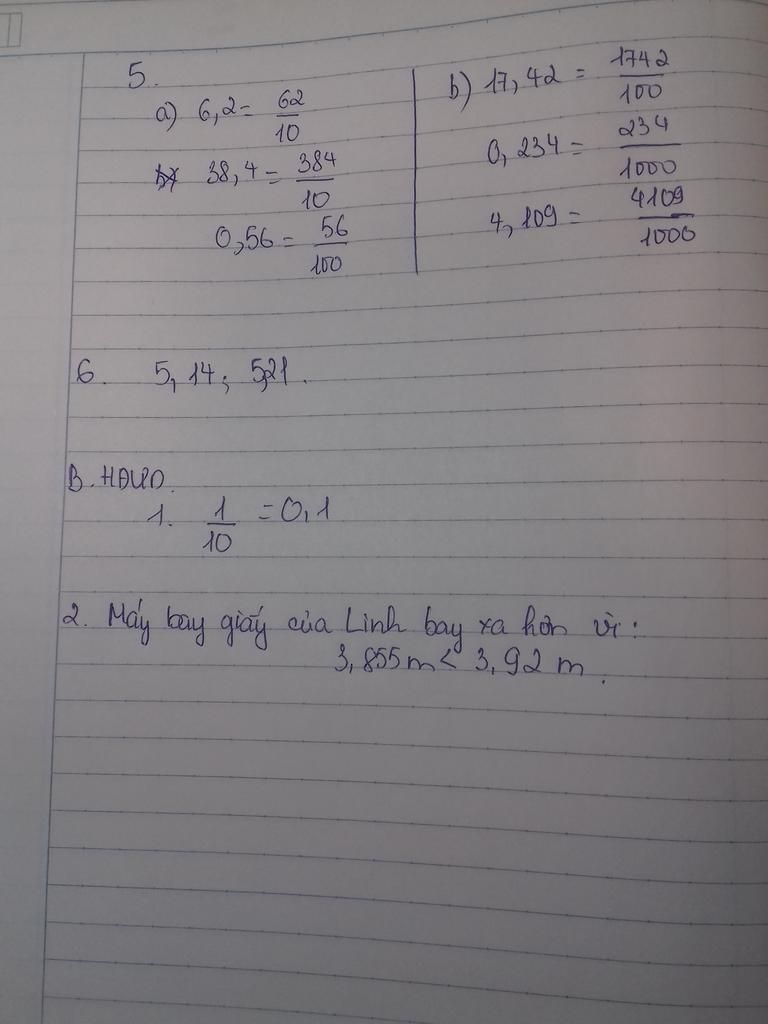 5.
a) 6,2 = 62/10
38,4 = 384/10
0,56 = 56/100
b) 17,42 = 1742/100
0,234 = 234/1000
4,109 = 4109/1000
6. 5,14; 5,21.
B. HĐƯD.
1. 1/10 = 0,1
2. Máy bay giấy của Linh bay xa hơn vì:
3,855 m < 3,92 m.